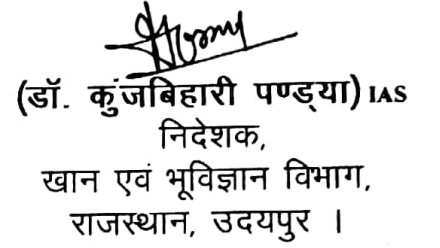 (डॉ. कुंजबिहारी पण्ड्या) IAS
निदेशक,
खान एवं भूविज्ञान विभाग,
राजस्थान, उदयपुर ।